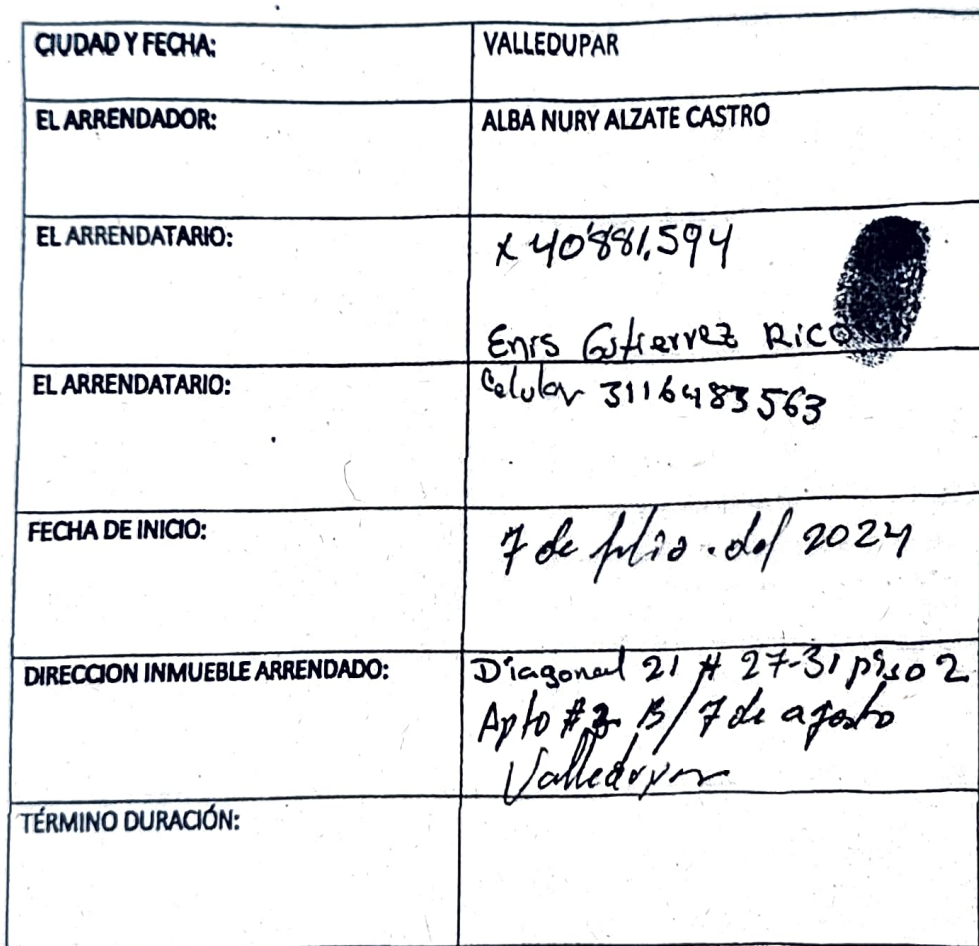 CIUDAD Y FECHA: VALLEDUPAR
EL ARRENDADOR: ALBA NURY ALZATE CASTRO
EL ARRENDATARIO: x 40'881.594
Enis Gutierrez Rico
EL ARRENDATARIO: Celular 3116483563
FECHA DE INICIO: 7 de julio del 2024
DIRECCION INMUEBLE ARRENDADO: Diagonal 21 # 27-31 piso 2
Apto # B/ 7 de agosto
Valledupar
TÉRMINO DURACIÓN: